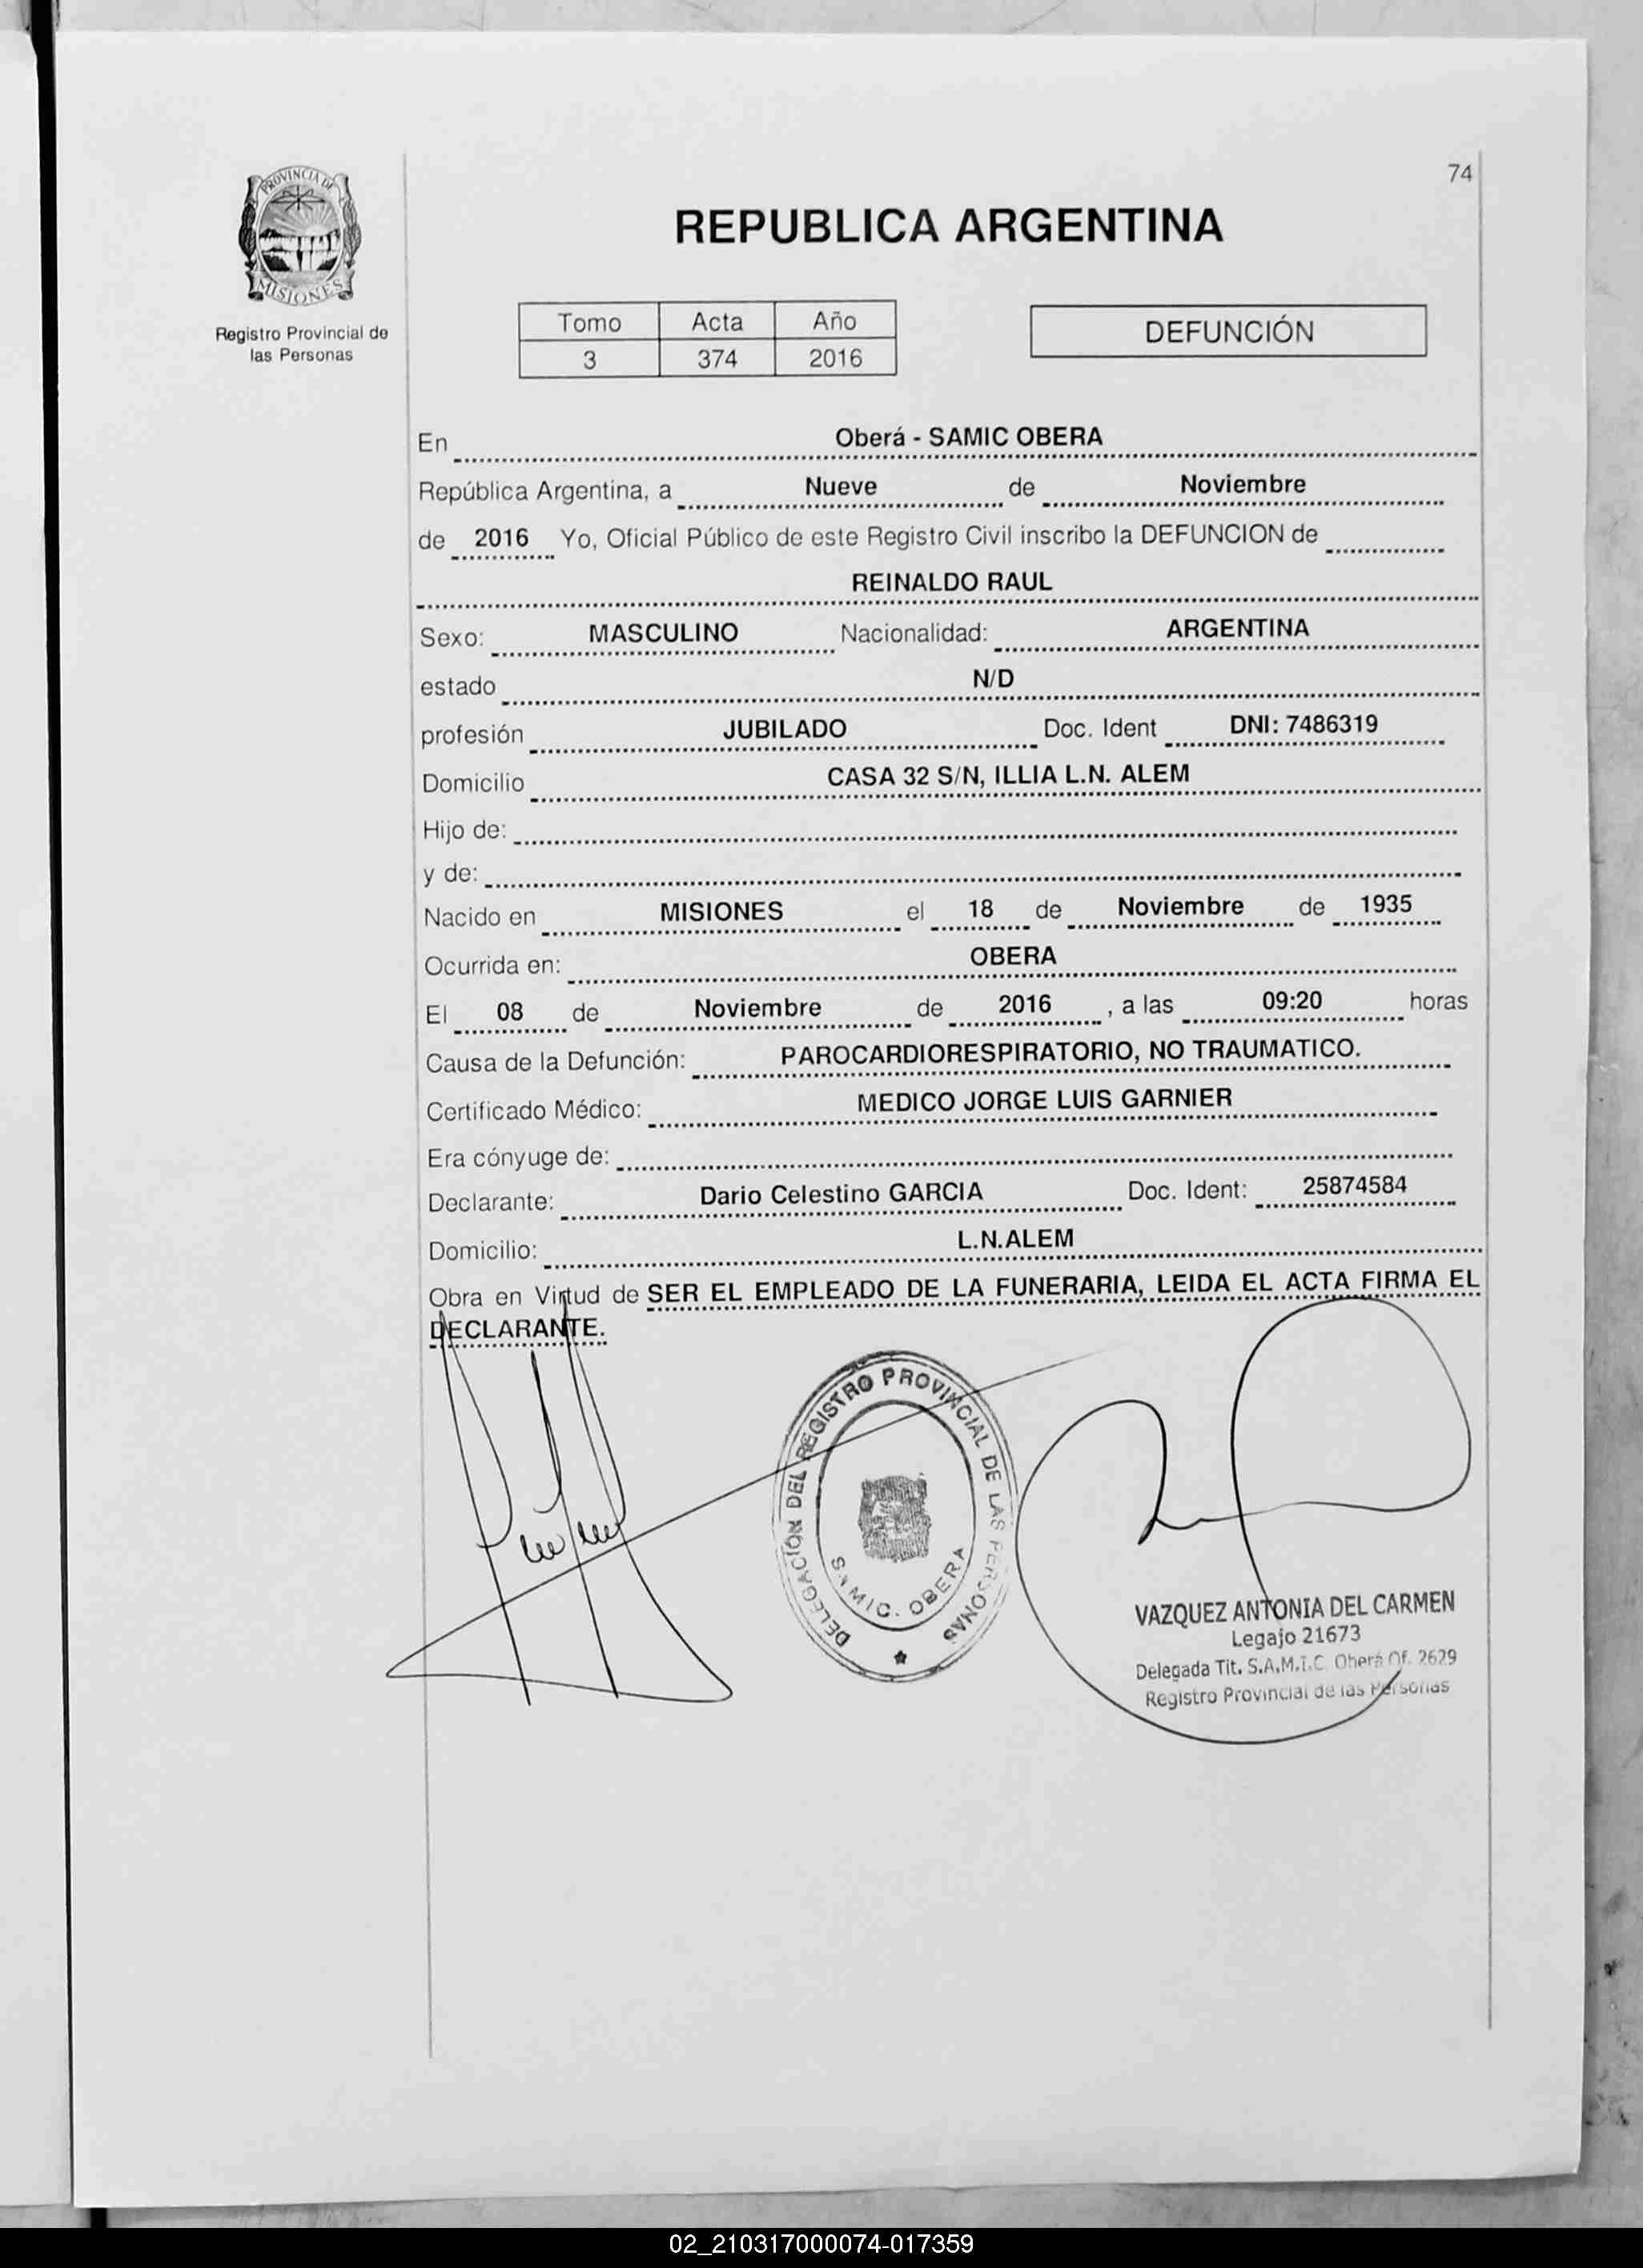 74
PROVINCIA DE
MISIONES
Registro Provincial de
las Personas
REPUBLICA ARGENTINA
Tomo Acta Año
3 374 2016
DEFUNCIÓN
En Oberá - SAMIC OBERA
República Argentina, a Nueve de Noviembre
de 2016 Yo, Oficial Público de este Registro Civil inscribo la DEFUNCION de
REINALDO RAUL
Sexo: MASCULINO Nacionalidad: ARGENTINA
estado N/D
profesión JUBILADO Doc. Ident DNI: 7486319
Domicilio CASA 32 S/N, ILLIA L.N. ALEM
Hijo de:
y de:
Nacido en MISIONES el 18 de Noviembre de 1935
Ocurrida en: OBERA
El 08 de Noviembre de 2016 , a las 09:20 horas
Causa de la Defunción: PAROCARDIORESPIRATORIO, NO TRAUMATICO.
Certificado Médico: MEDICO JORGE LUIS GARNIER
Era cónyuge de:
Declarante: Dario Celestino GARCIA Doc. Ident: 25874584
Domicilio: L.N.ALEM
Obra en Virtud de SER EL EMPLEADO DE LA FUNERARIA, LEIDA EL ACTA FIRMA EL
DECLARANTE.
DELEGACIÓN DEL REGISTRO PROVINCIAL DE LAS PERSONAS
SAMIC. OBERA
VAZQUEZ ANTONIA DEL CARMEN
Legajo 21673
Delegada Tit. S.A.M.I.C Oberá Of. 2629
Registro Provincial de las Personas
02_210317000074-017359